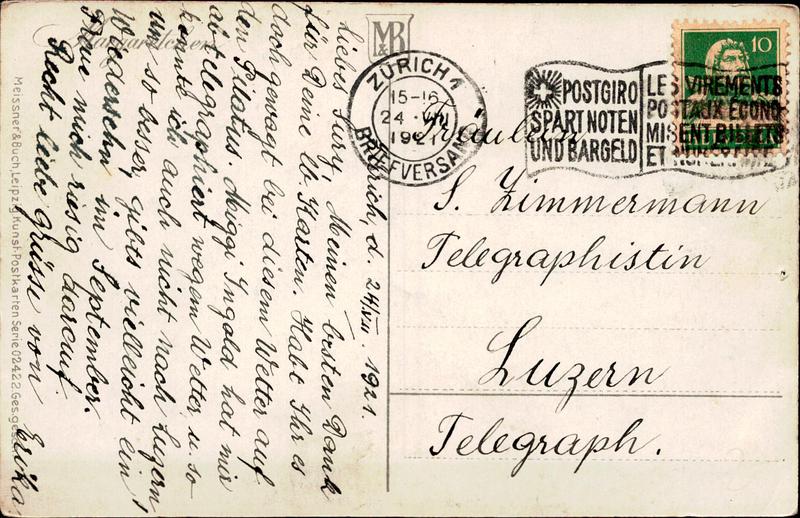 Zürich, d. 24/VIII. 1921.
Liebes Sury, Meinen besten Dank
für Deine lb. Karten. Habt Ihr es
doch gewagt bei diesem Wetter auf
den Pilatus. Miggi Ingold hat mir
abtelegraphiert wegem Wetter u. so
konnte ich auch nicht nach Luzern
um so besser, gibts vielleicht ein
Wiedersehn im September.
Freue mich riesig darauf.
Recht liebe Grüsse von Erika
Meissner & Buch, Leipzig Kunst-Postkarten Serie 02422 Ges. gesch.
M&B
ZÜRICH 1
15-16
24 · VIII
1921
BRIEFVERSAND
POSTGIRO
SPART NOTEN
UND BARGELD
LES VIREMENTS
POSTAUX ÉCONO
MISENT BILLETS
ET
10
Fräulein
S. Zimmermann
Telegraphistin
Luzern
Telegraph.